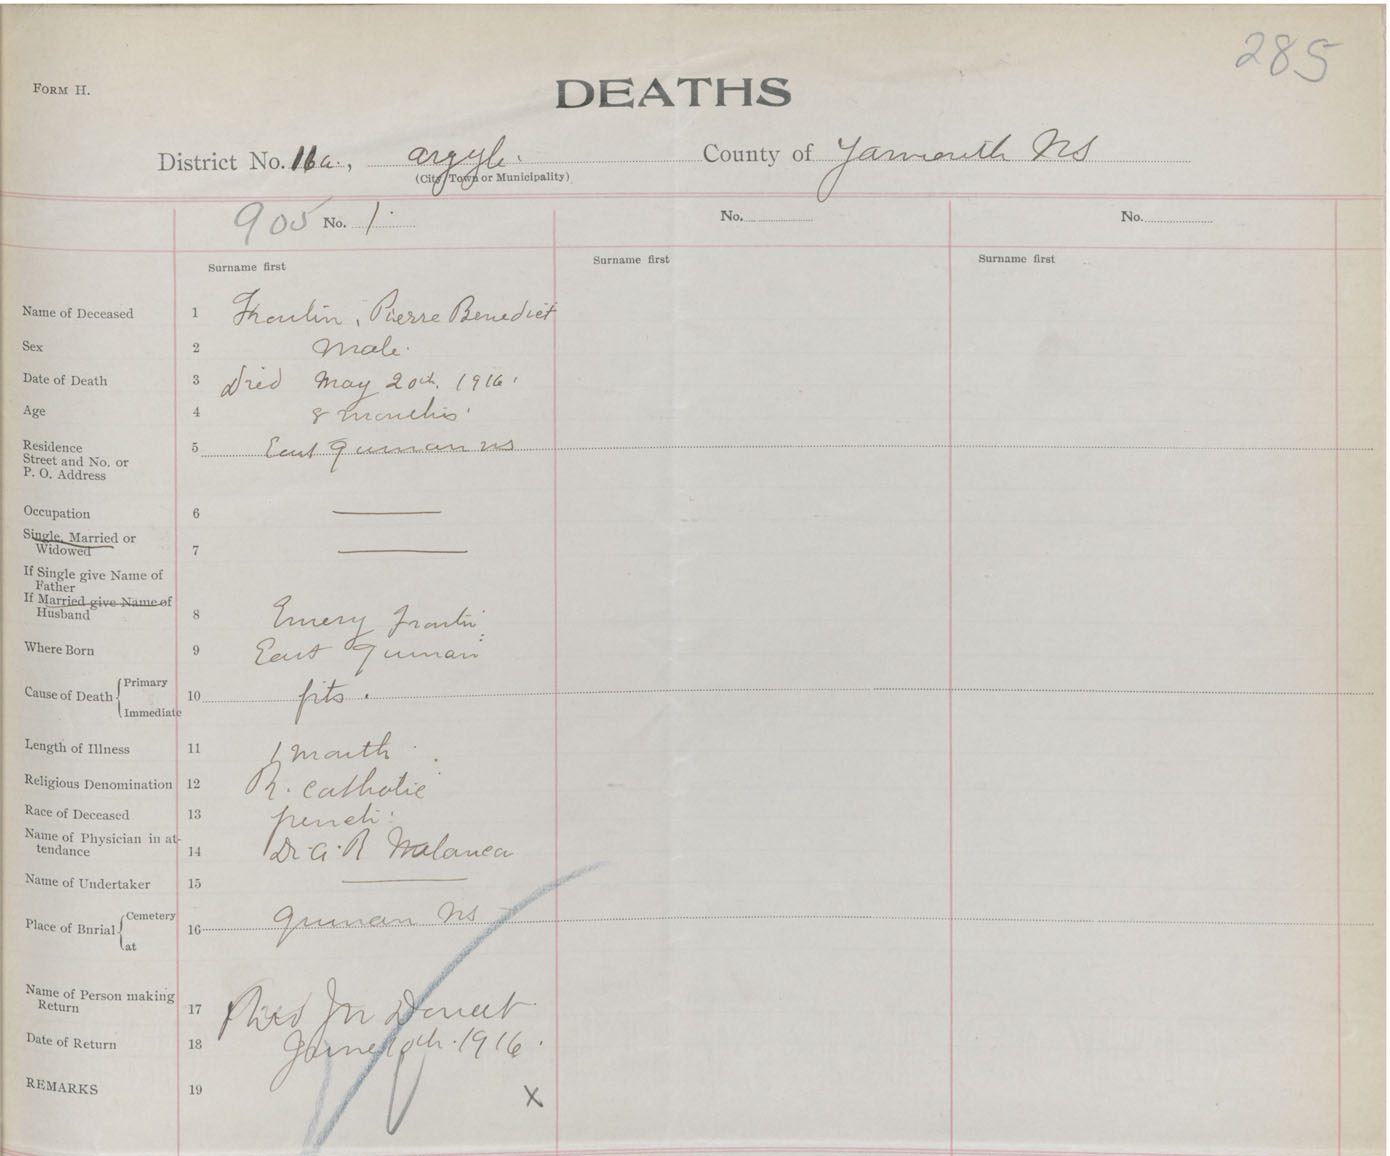 285
FORM H.
DEATHS
District No. 16a., Argyle. County of Yarmouth NS
(City, Town or Municipality)
905 No. 1. No. No.
Surname first Surname first Surname first
Name of Deceased 1 Froutin, Pierre Benedict
Sex 2 Male.
Date of Death 3 Died May 20th. 1916.
Age 4 8 months
Residence
Street and No. or
P. O. Address 5 East Quinan NS
Occupation 6
Single, Married or
Widowed 7
If Single give Name of
Father
If Married give Name of
Husband 8 Emery
Where Born 9 East Quinan
Cause of Death Primary
10 fits.
Immediate
Length of Illness 11 1 month.
Religious Denomination 12 R. Catholic
Race of Deceased 13 french.
Name of Physician in at-
tendance 14 Dr. A. R
Name of Undertaker 15
Place of Burial Cemetery
16 Quinan NS
at
Name of Person making
Return 17
Date of Return 18 June 10th. 1916.
REMARKS 19 X